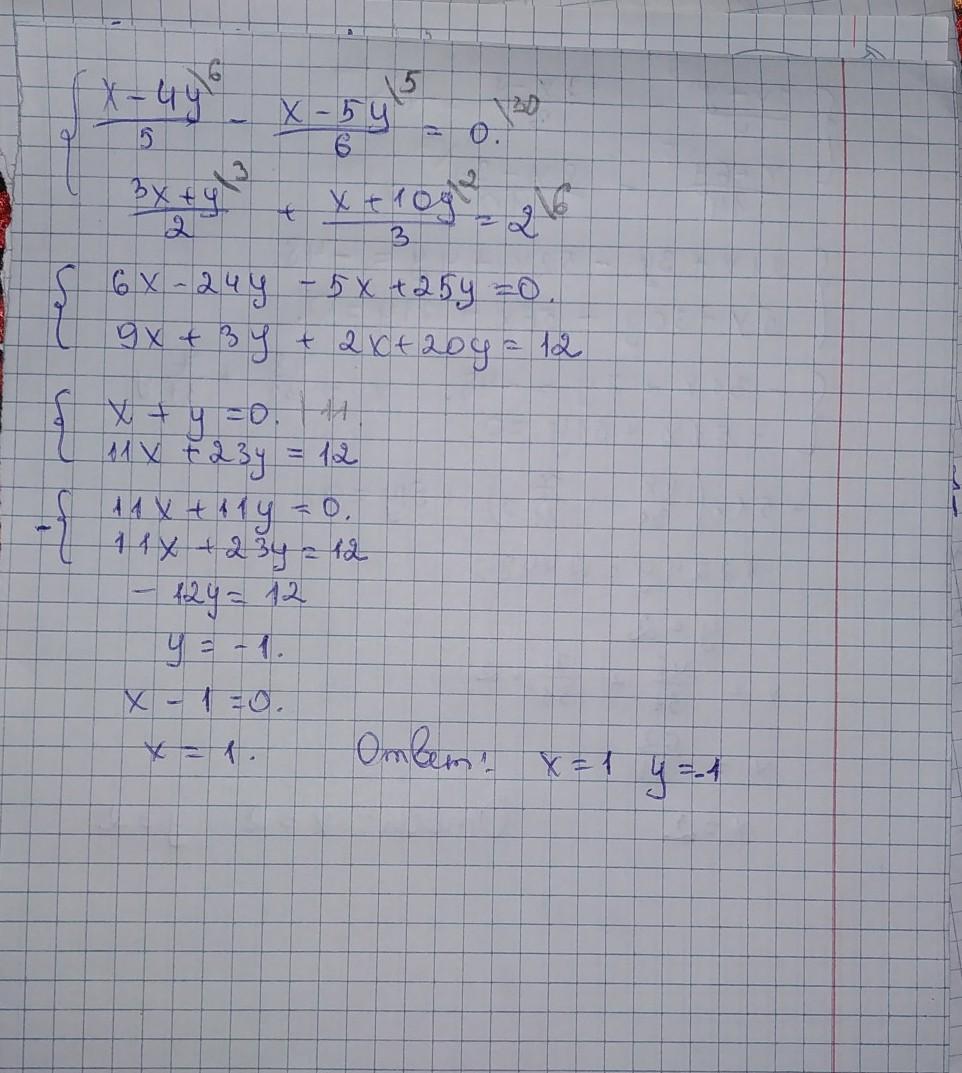 { (x-4y)/5 \6 - (x-5y)/6 \5 = 0. \30
(3x+y)/2 \3 + (x+10y)/3 \2 = 2 \6
{ 6x-24y -5x+25y=0.
9x+3y + 2x+20y=12
{ x+y=0. | 11
11x+23y=12
-{ 11x+11y=0.
11x+23y=12
- 12y=12
y=-1.
x-1=0.
x=1. Ответ: x=1 y=-1